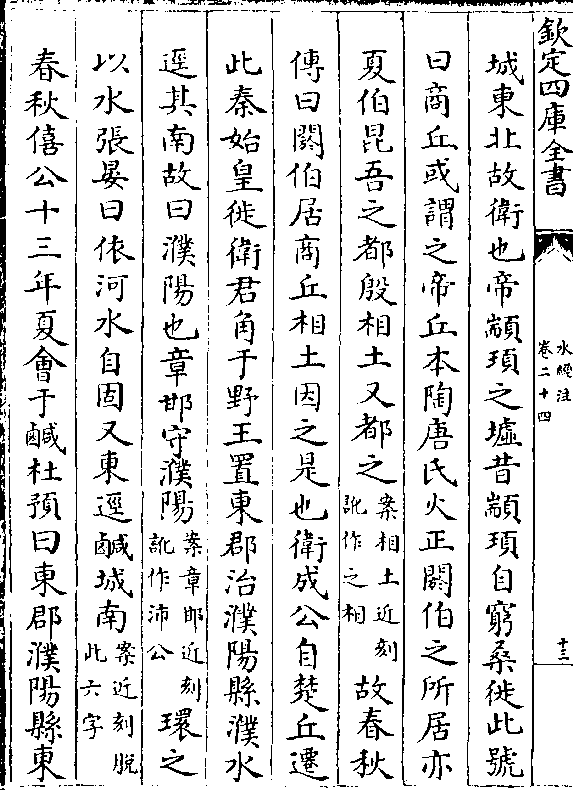 欽定四庫全書
水經注
卷二十四
十三
城東北故衛也帝顓頊之墟昔顓頊自窮桑徙此號
曰商丘或謂之帝丘本陶唐氏火正閼伯之所居亦
夏伯昆吾之都殷相土又都之案相土近刻訛作之相故春秋
傳曰閼伯居商丘相土因之是也衛成公自楚丘遷
此秦始皇徙衛君角于野王置東郡治濮陽縣濮水
逕其南故曰濮陽也章邯守濮陽案章邯近刻訛作沛公環之
以水張晏曰依河水自固又東逕鹹城南案近刻脫此六字
春秋僖公十三年夏會于鹹杜預曰東郡濮陽縣東